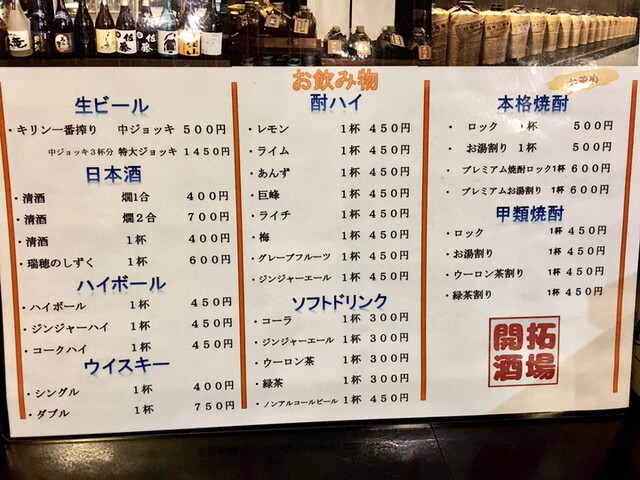 お飲み物
生ビール
・キリン一番搾り 中ジョッキ 500円
中ジョッキ3杯分 特大ジョッキ 1450円
日本酒
・清酒 燗1合 400円
・清酒 燗2合 700円
・清酒 1杯 400円
・瑞穂のしずく 1杯 600円
ハイボール
・ハイボール 1杯 450円
・ジンジャーハイ 1杯 450円
・コークハイ 1杯 450円
ウイスキー
・シングル 1杯 400円
・ダブル 1杯 750円
酎ハイ
・レモン 1杯 450円
・ライム 1杯 450円
・あんず 1杯 450円
・巨峰 1杯 450円
・ライチ 1杯 450円
・梅 1杯 450円
・グレープフルーツ 1杯 450円
・ジンジャーエール 1杯 450円
ソフトドリンク
・コーラ 1杯 300円
・ジンジャーエール 1杯 300円
・ウーロン茶 1杯 300円
・緑茶 1杯 300円
・ノンアルコールビール 1杯 450円
本格焼酎
・ロック 1杯 500円
・お湯割り 1杯 500円
・プレミアム焼酎ロック 1杯 600円
・プレミアムお湯割り 1杯 600円
甲類焼酎
・ロック 1杯 450円
・お湯割り 1杯 450円
・ウーロン茶割り 1杯 450円
・緑茶割り 1杯 450円
開拓
酒場
佐藤
佐藤